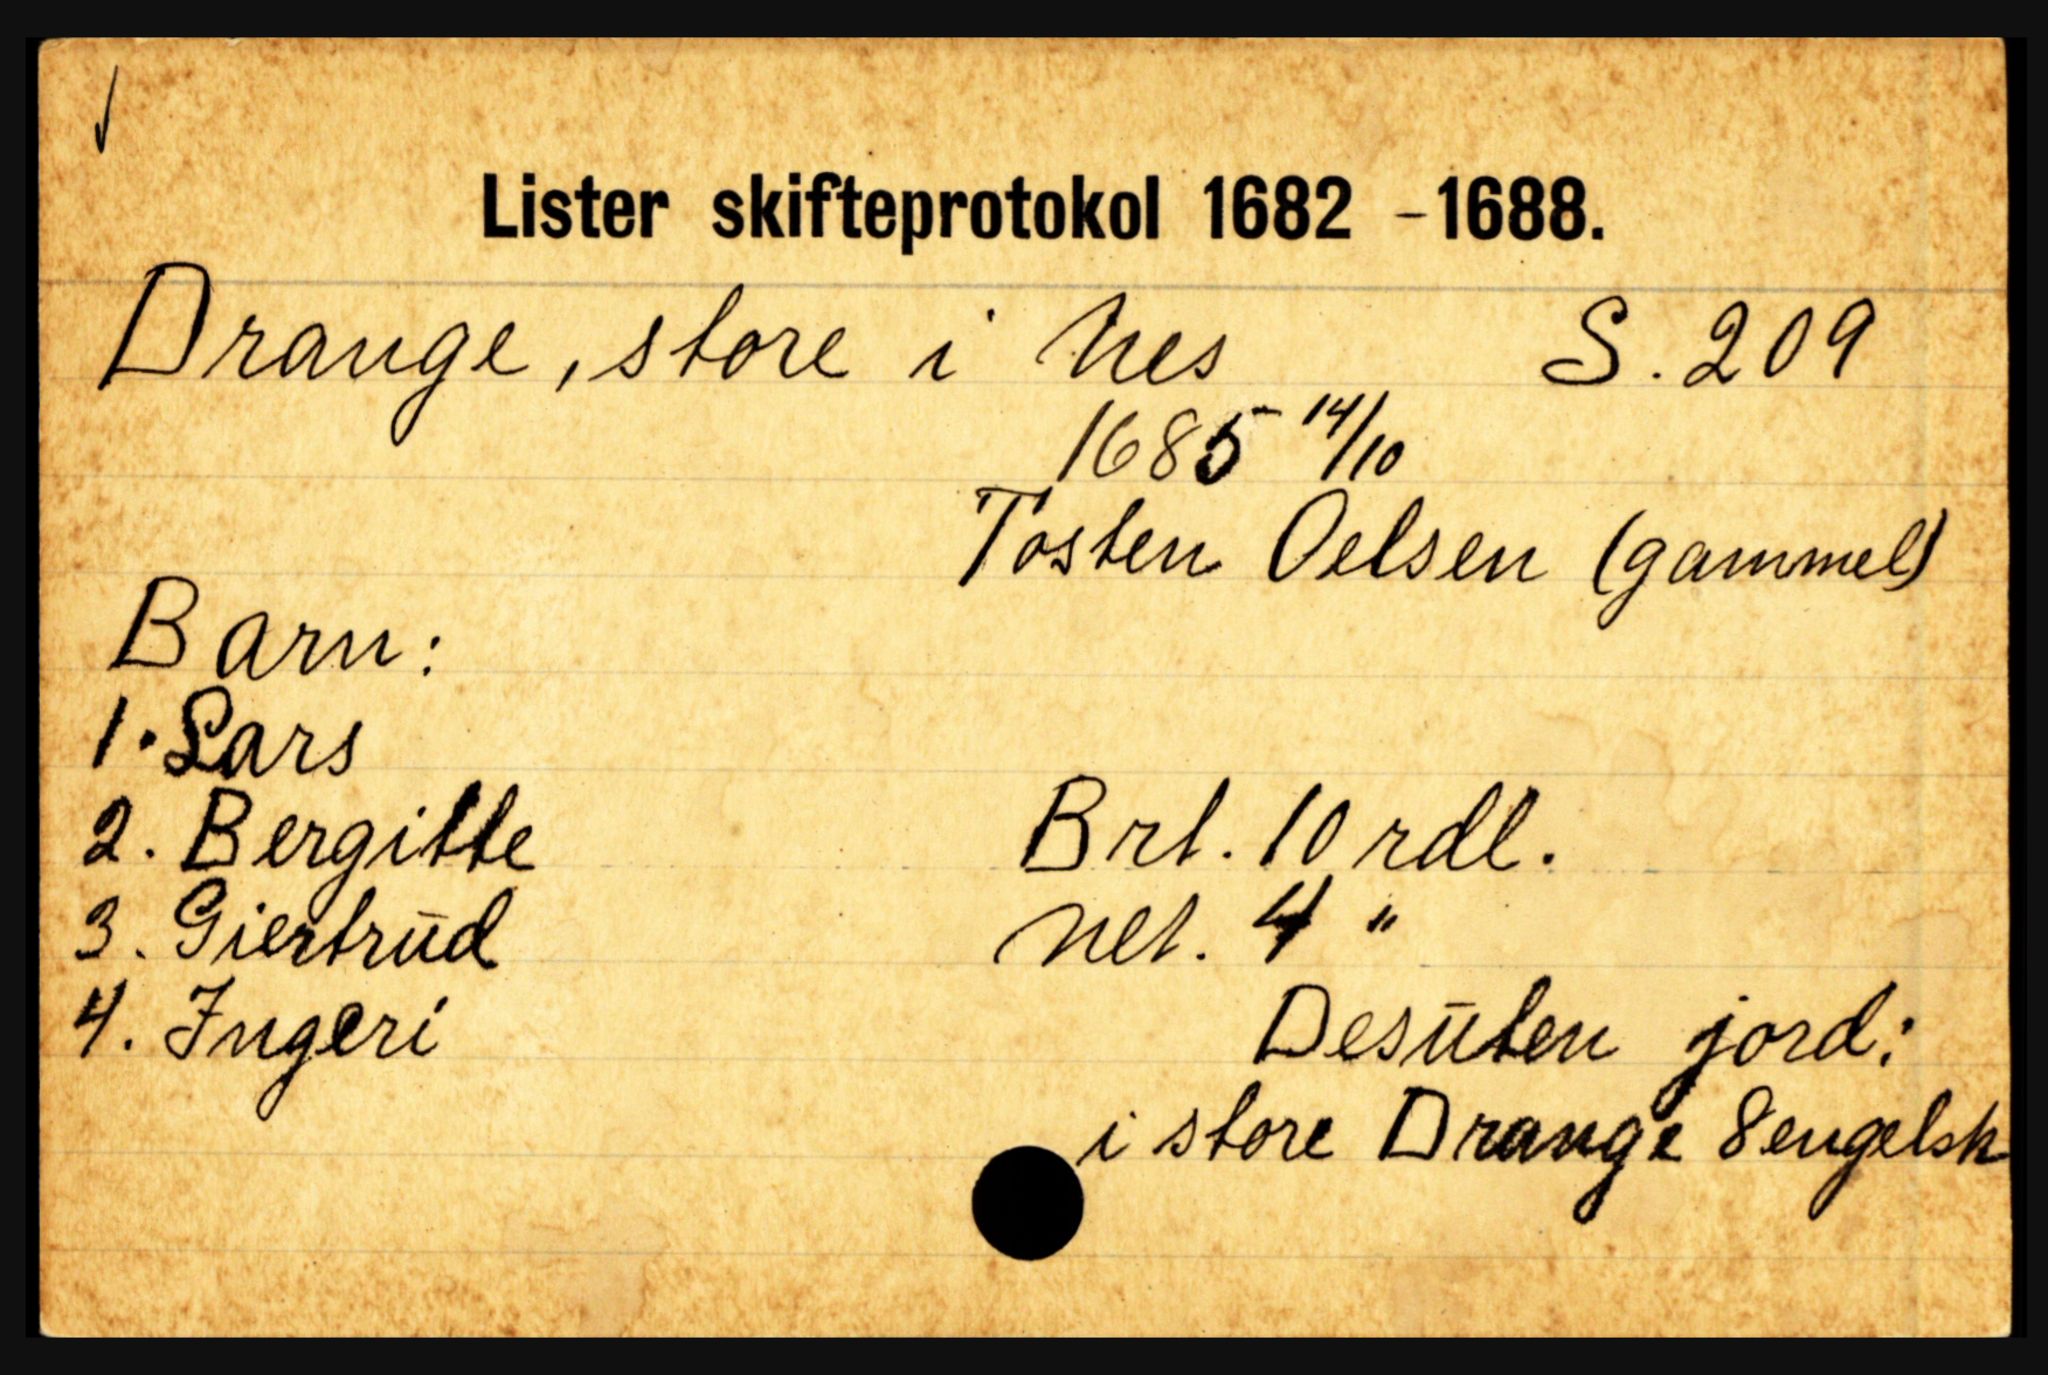 Lister skifteprotokol 1682 - 1688.
Drange, store i Nes S. 209
1685 14/10
Tosten Oelsen (gammel)
Barn:
1. Lars
2. Bergitte Brt. 10 rdl.
3. Giertrūd Net. 4 "
4. Ingeri Desūten jord:
i store Drange 8 engelsk